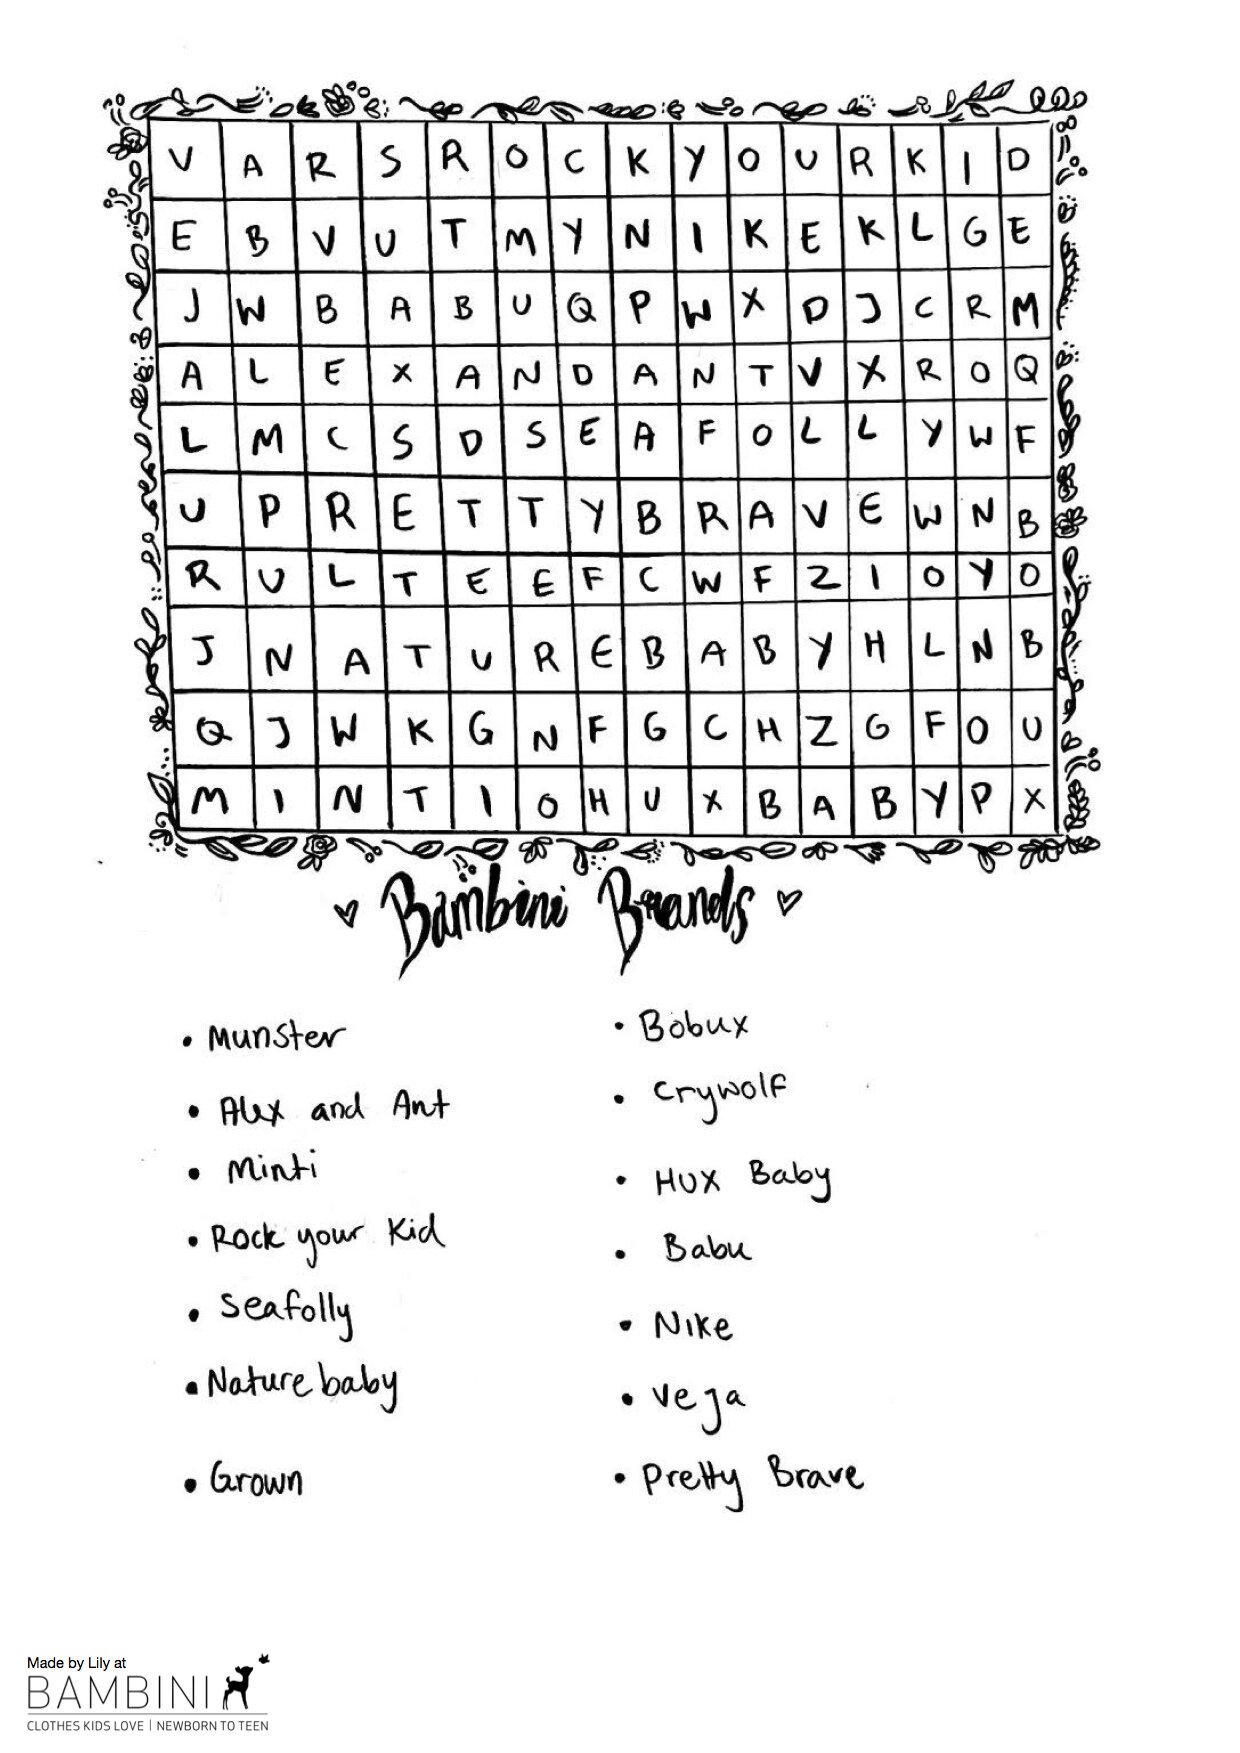 V A R S R O C K Y O U R K I D
E B V U T M Y N I K E K L G E
J W B A B U Q P W X D J C R M
A L E X A N D A N T V X R O Q
L M C S D S E A F O L L Y W F
U P R E T T Y B R A V E W N B
R U L T E E F C W F Z I O Y O
J N A T U R E B A B Y H L N B
Q J W K G N F G C H Z G F O U
M I N T I O H U X B A B Y P X
Bambini Brands
• Munster
• Alex and Ant
• Minti
• Rock your Kid
• Seafolly
• Nature baby
• Grown
• Bobux
• Crywolf
• Hux Baby
• Babu
• Nike
• Veja
• Pretty Brave
Made by Lily at
BAMBINI
CLOTHES KIDS LOVE | NEWBORN TO TEEN